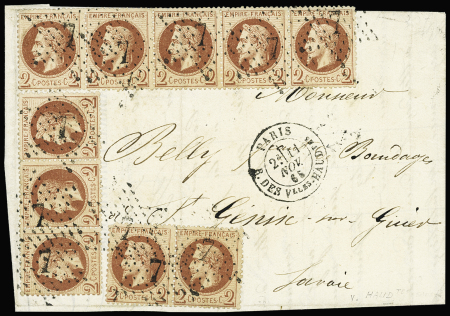 EMPIRE FRANÇAIS EMPIRE FRANÇAIS EMPIRE FRANÇAIS EMPIRE FRANÇAIS EMPIRE FRANÇAIS
7 7 7 7 7
2 C POSTES C 2 2 C POSTES C 2 2 C POSTES C 2 2 C POSTES C 2 2 C POSTES C 2
Monsieur
PARIS
NOV
68
R. DES VLLES-HAUDTES
Belly Bandage
St Génix-sur-Guier
Savoie
EMPIRE FRANÇAIS
2 C POSTES C 2
7
EMPIRE FRANÇAIS
2 C POSTES C 2
7
EMPIRE FRANÇAIS
2 C POSTES C 2
7
EMPIRE FRANÇAIS EMPIRE FRANÇAIS
7 7 7
2 C POSTES C 2 2 C POSTES C 2